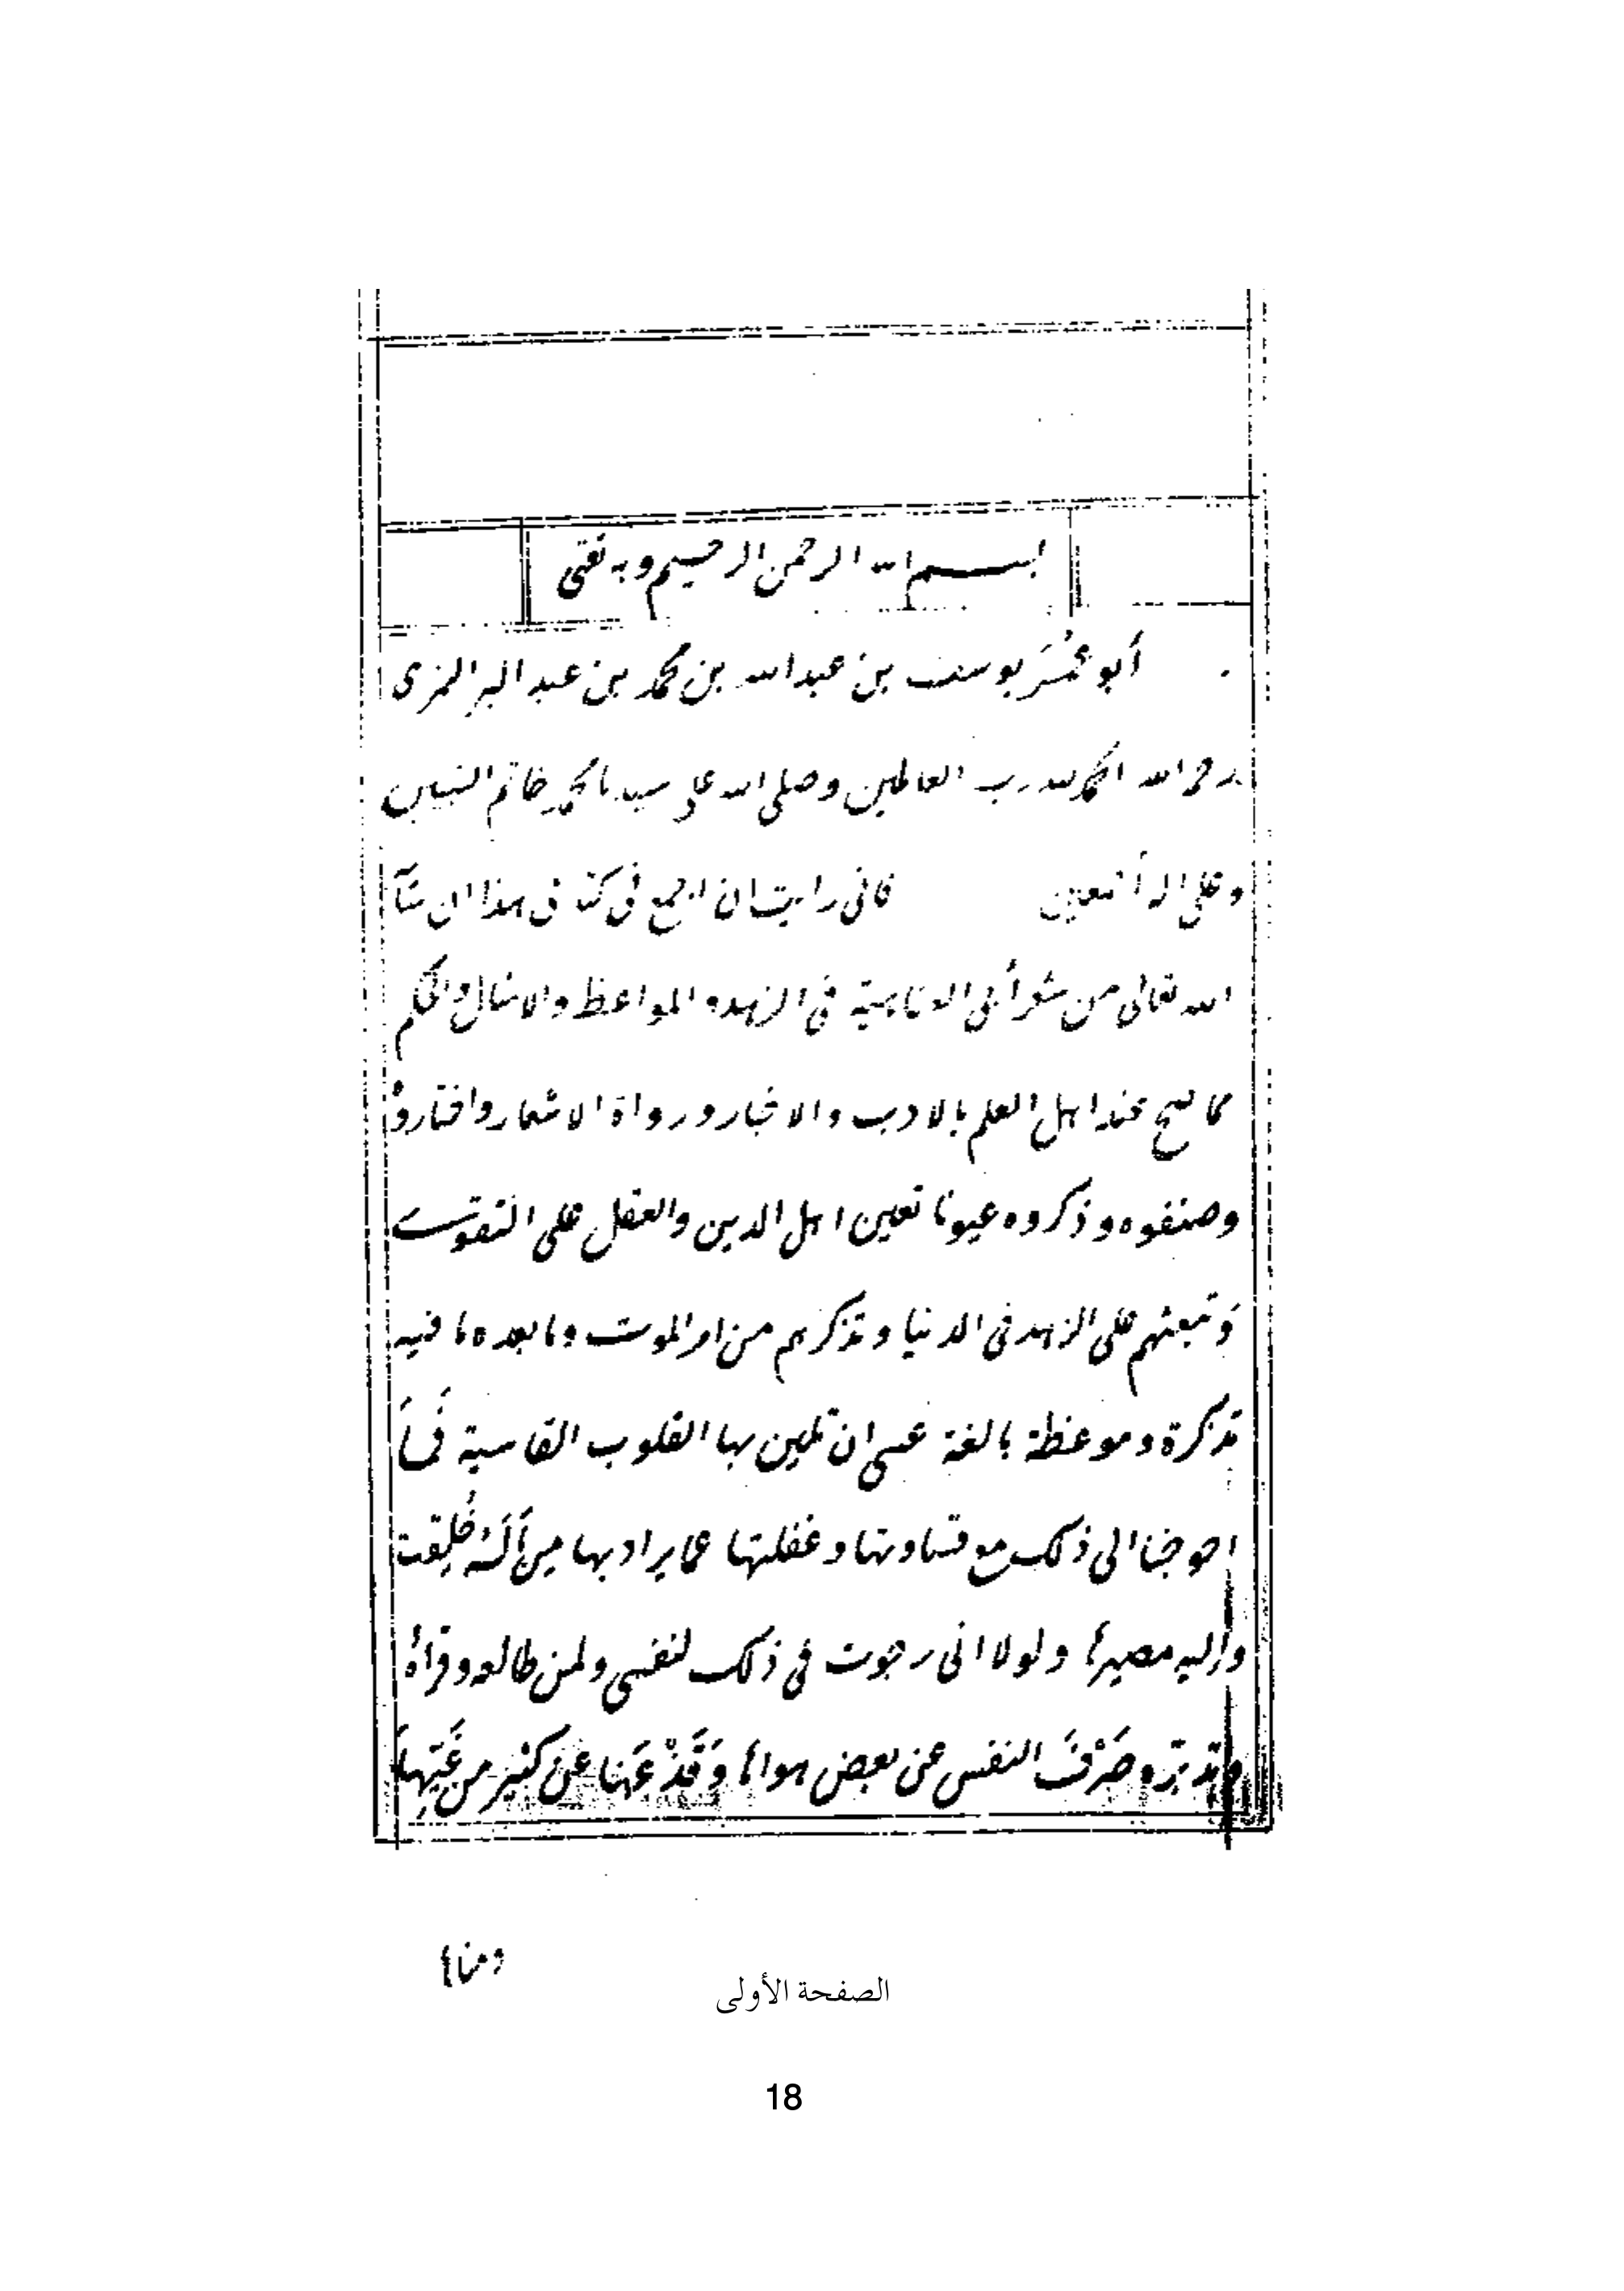 بسم الله الرحمن الرحيم وبه ثقتى
أبو عُمَر يوسف بن عبدالله بن محمد بن عبد البر النمرى
رحمه الله الحمد لله رب العالمين وصلى الله على سيدنا محمد خاتم النبيين
وعلى اله أجمعين فانى رايت ان اجمع فى كتابى هذا ان شآ
الله تعالى من شعر أبى العتاهية فى الزهد والمواعظ والامثال والحكم
مما صح عند اهل العلم بالادب والاخبار ورواة الاشعار واختاروه
وصنفوه وذكروه عيونا تعين اهل الدين والعقل على التقوى
وتبعثهم على الزهد فى الدنيا وتذكرهم من امر الموت وما بعده ما فيه
تذكرة وموعظة بالغة عسى ان تلين بها القلوب القاسية فَمَا
احوجنا الى ذلك مع قساوتها وغفلتها عما يراد بها مِمَّا لَهُ خُلِقت
وإليه مصيرها ولولا انى رجوت فى ذلك لنفسى ولمن طالعه وقرأه
وتدبره صَرْفَ النفس عن بعض هواها وَقَدْعَهَا عن كثير من غَيِّهَا
ومناها
الصفحة الأولى
18